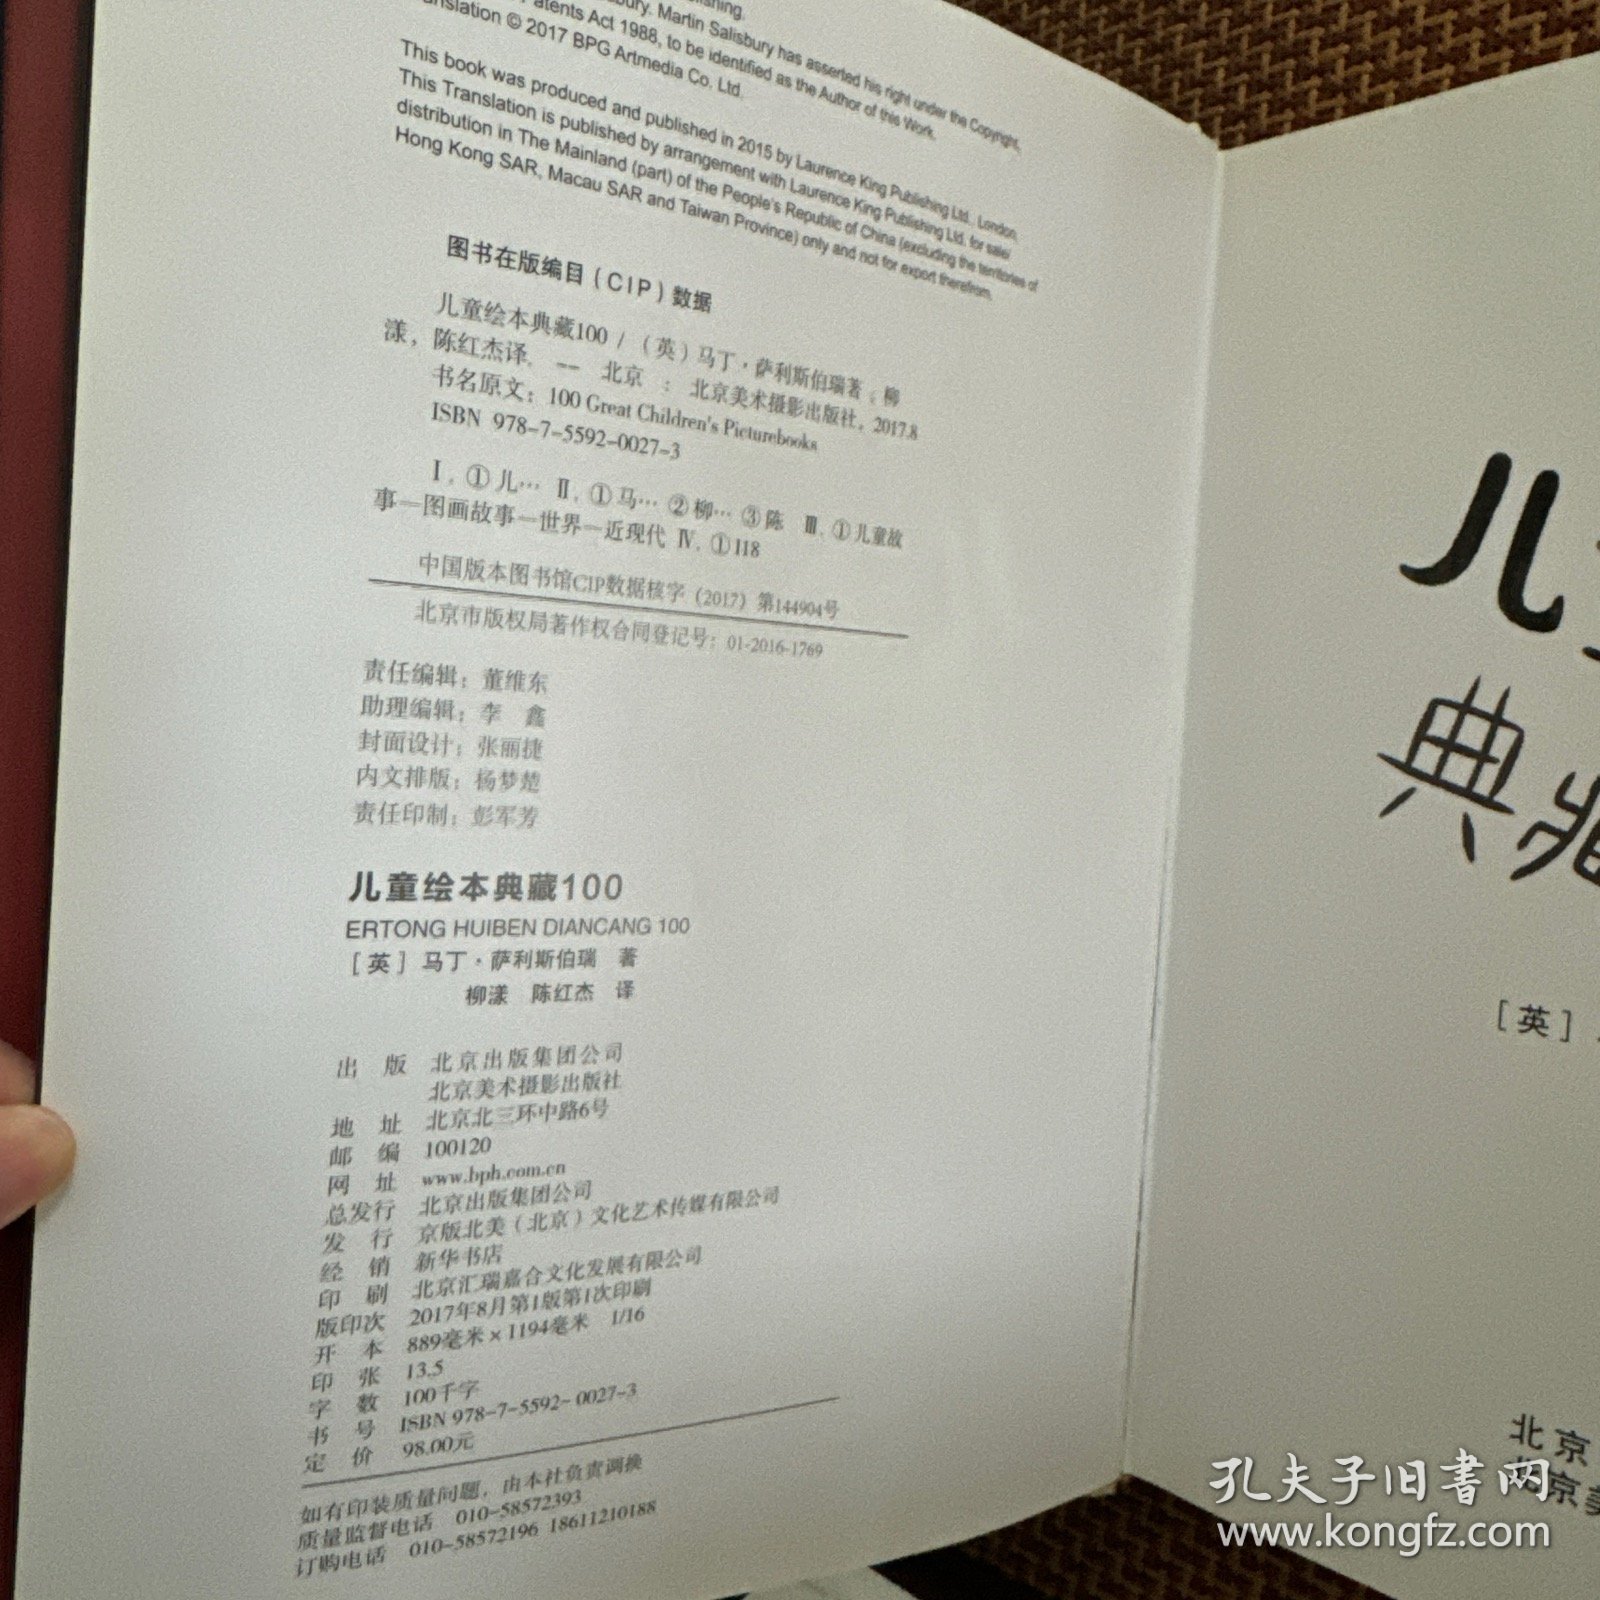 shing.
sbury. Martin Salisbury has asserted his right under the Copyright,
Patents Act 1988, to be identified as the Author of this Work.
Translation © 2017 BPG Artmedia Co. Ltd.
This book was produced and published in 2015 by Laurence King Publishing Ltd., London.
This Translation is published by arrangement with Laurence King Publishing Ltd. for sale/
distribution in The Mainland (part) of the People's Republic of China (excluding the territories of
Hong Kong SAR, Macau SAR and Taiwan Province) only and not for export therefrom.
图书在版编目（CIP）数据
儿童绘本典藏100 / （英）马丁·萨利斯伯瑞著；柳
漾，陈红杰译. -- 北京 ： 北京美术摄影出版社，2017.8
书名原文：100 Great Children's Picturebooks
ISBN 978-7-5592-0027-3
Ⅰ. ①儿… Ⅱ. ①马… ②柳… ③陈 Ⅲ. ①儿童故
事—图画故事—世界—近现代 Ⅳ. ①I18
中国版本图书馆CIP数据核字（2017）第144904号
北京市版权局著作权合同登记号：01-2016-1769
责任编辑：董维东
助理编辑：李 鑫
封面设计：张丽捷
内文排版：杨梦楚
责任印制：彭军芳
儿童绘本典藏100
ERTONG HUIBEN DIANCANG 100
［英］ 马丁·萨利斯伯瑞 著
柳漾 陈红杰 译
出 版 北京出版集团公司
北京美术摄影出版社
地 址 北京北三环中路6号
邮 编 100120
网 址 www.bph.com.cn
总发行 北京出版集团公司
发 行 京版北美（北京）文化艺术传媒有限公司
经 销 新华书店
印 刷 北京汇瑞嘉合文化发展有限公司
版印次 2017年8月第1版第1次印刷
开 本 889毫米×1194毫米 1/16
印 张 13.5
字 数 100千字
书 号 ISBN 978-7-5592-0027-3
定 价 98.00元
如有印装质量问题，由本社负责调换
质量监督电话 010-58572393
订购电话 010-58572196 18611210188
儿
典藏
［英］
北京
北京美
孔夫子旧书网
www.kongfz.com